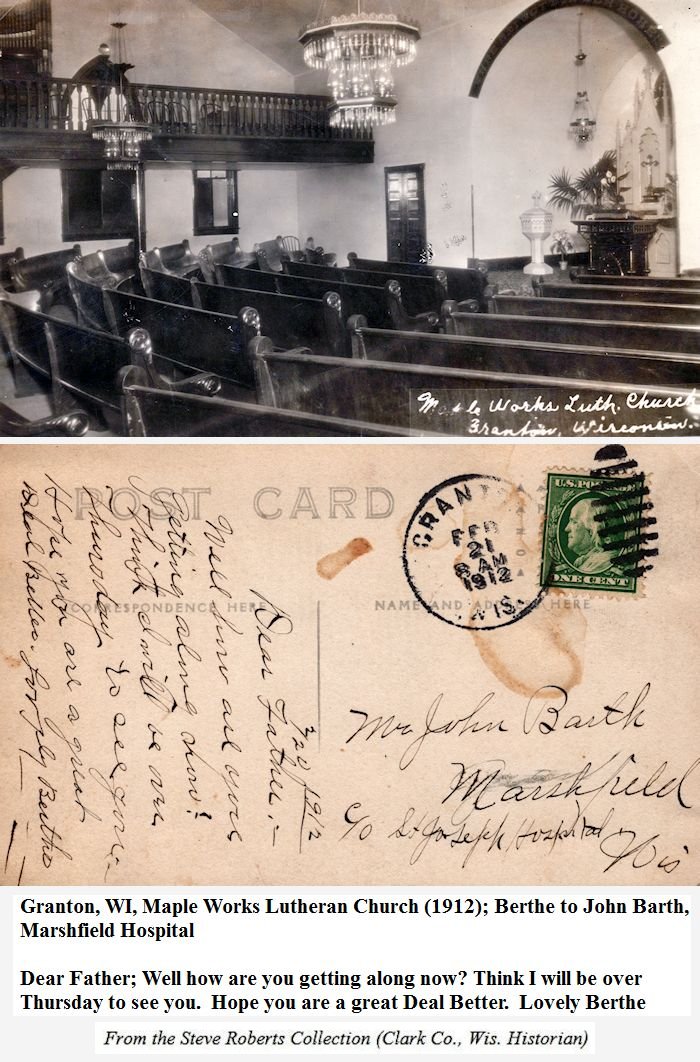 Maple Works Luth. Church
Granton, Wisconsin.
POST CARD
CORRESPONDENCE HERE
NAME AND ADDRESS HERE
GRANTON
FEB
21
8 AM
1912
WIS.
U.S. POSTAGE
ONE CENT
2/20 1912
Dear Father:-
Well how are you
Getting along now?
Think I will be over
Thursday to see you.-
Hope you are a great
Deal Better.
Mr John Barth
Marshfield
c/o St Joseph Hospital
Wis
Granton, WI, Maple Works Lutheran Church (1912); Berthe to John Barth,
Marshfield Hospital
Dear Father; Well how are you getting along now? Think I will be over
Thursday to see you. Hope you are a great Deal Better. Lovely Berthe
From the Steve Roberts Collection (Clark Co., Wis. Historian)